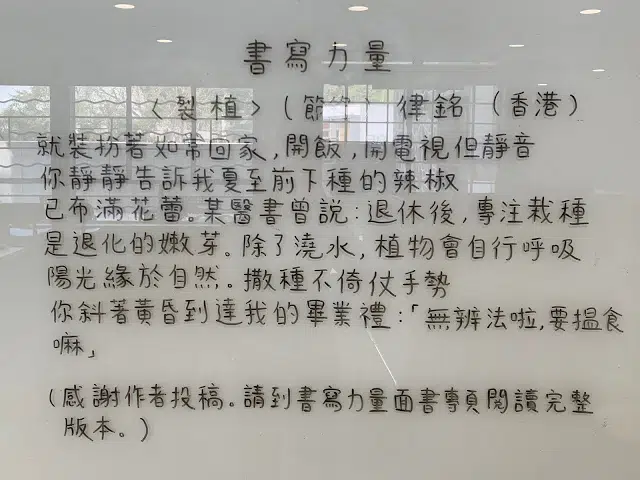 書寫力量
〈裂植〉(節錄) 律銘 (香港)
就裝扮著如常回家,開飯,開電視但靜音
你靜靜告訴我夏至前下種的辣椒
已布滿花蕾。某醫書曾說:退休後,專注栽種
是退化的嫩芽。除了澆水,植物會自行呼吸
陽光緣於自然。撒種不倚仗手勢
你斜著黃昏到達我的畢業禮:「無辨法啦,要搵食
嘛」
(感謝作者投稿。請到書寫力量面書專頁閱讀完整
版本。)